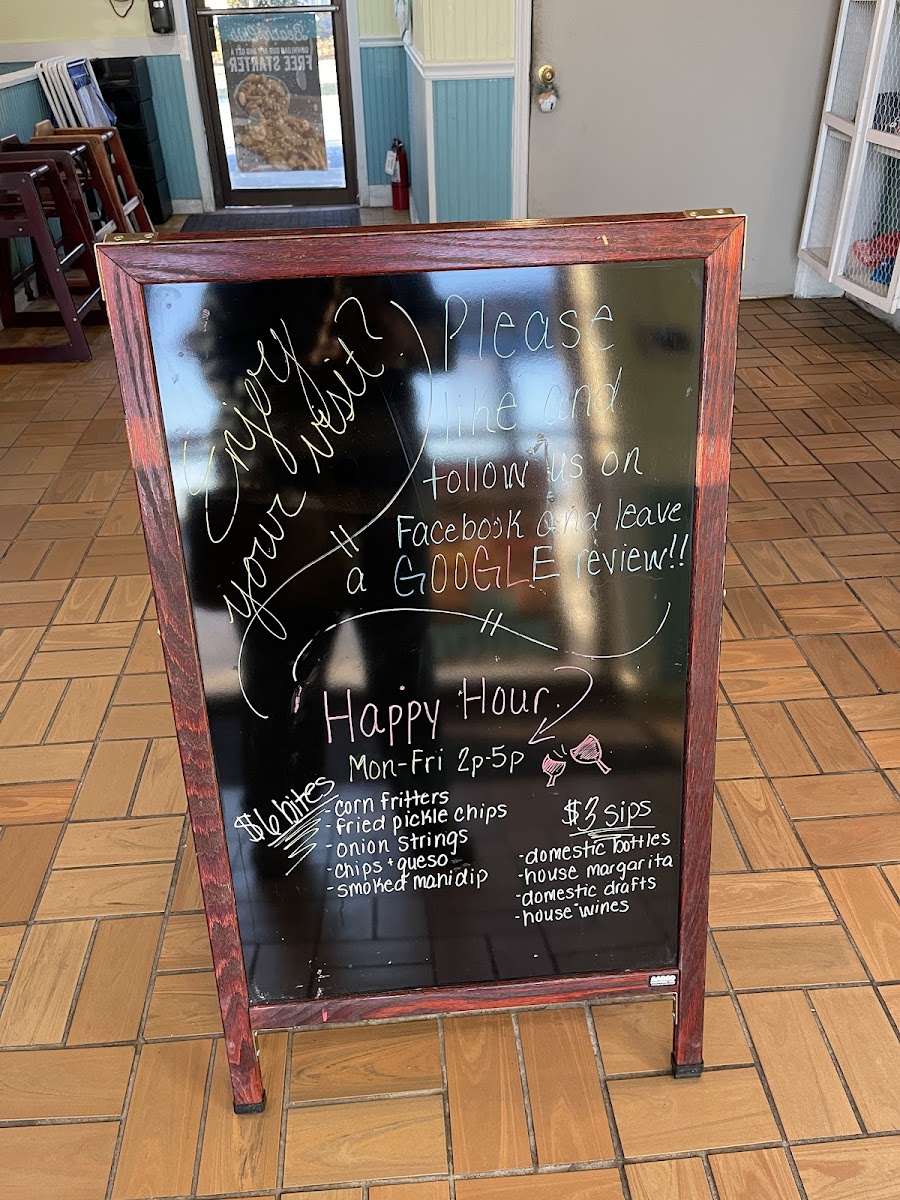 Beach Club
DOWNLOAD OUR APP AND GET A
FREE STARTER
Enjoy
your visit?
Please
like and
follow us on
Facebook and leave
a GOOGLE review!!
Happy Hour
Mon-Fri 2p-5p
$6 bites
-corn fritters
-fried pickle chips
-onion strings
-chips + queso
-smoked mahi dip
$3 sips
-domestic bottles
-house margarita
-domestic drafts
-house wines